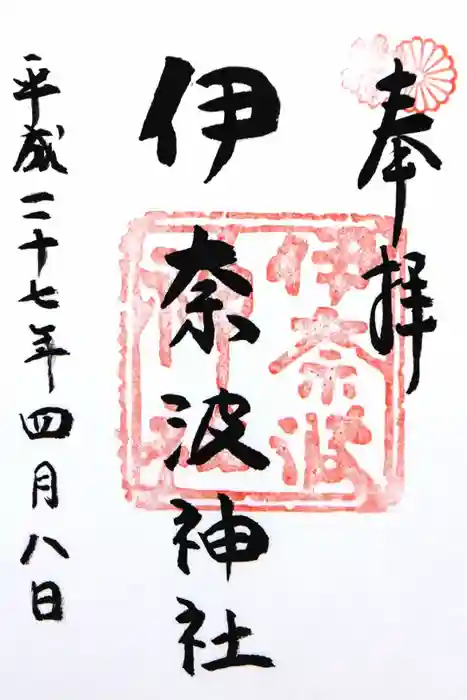 奉拝
伊奈波神社
伊奈波神社
平成二十七年四月八日